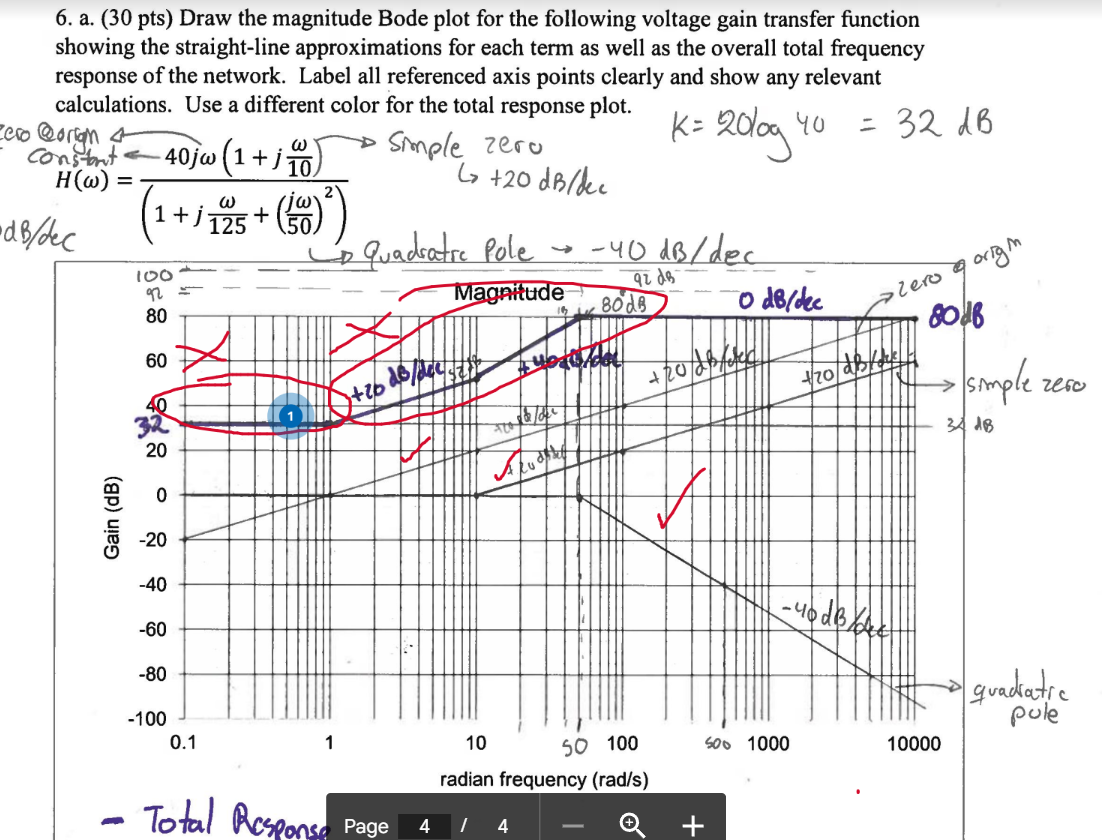 6. a. (30 pts) Draw the magnitude Bode plot for the following voltage gain transfer function
showing the straight-line approximations for each term as well as the overall total frequency
response of the network. Label all referenced axis points clearly and show any relevant
calculations. Use a different color for the total response plot.
K= 20log 40 = 32 dB
zero @orign
constant
40jω (1 + j ω/10)
simple zero
↳ +20 dB/dec
H(ω) =
(1 + j ω/125 + (jω/50)²)
dB/dec
↳ quadratic Pole → -40 dB/dec
zero @ orign
100
92
92 dB
Magnitude
80 dB
0 dB/dec
80 dB
80
60
40
32
20
0
-20
-40
-60
-80
-100
1
+20 dB/dec
52dB
+40dB/dec
+20 dB/dec
+20 dB/dec
simple zero
+20 dB/dec
+20 dB/dec
32 dB
-40dB/dec
quadratic
pole
Gain (dB)
0.1 1 10 50 100 500 1000 10000
radian frequency (rad/s)
- Total Response
Page 4 / 4 — +